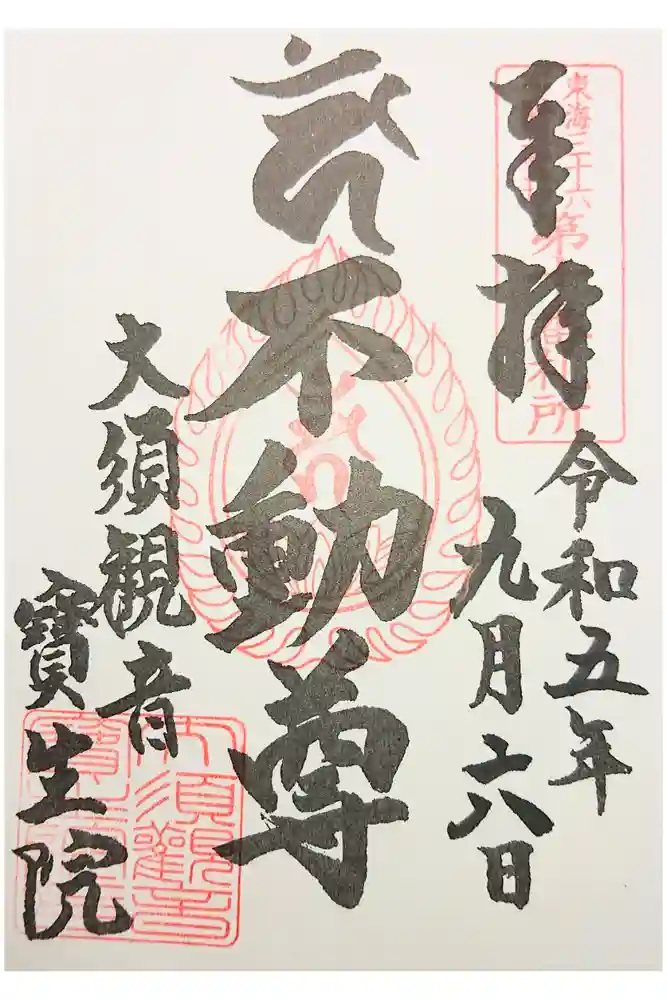 奉拝
令和五年
九月六日
不動尊
大須観音
寶生院
東海三十六
第
所
大須観音